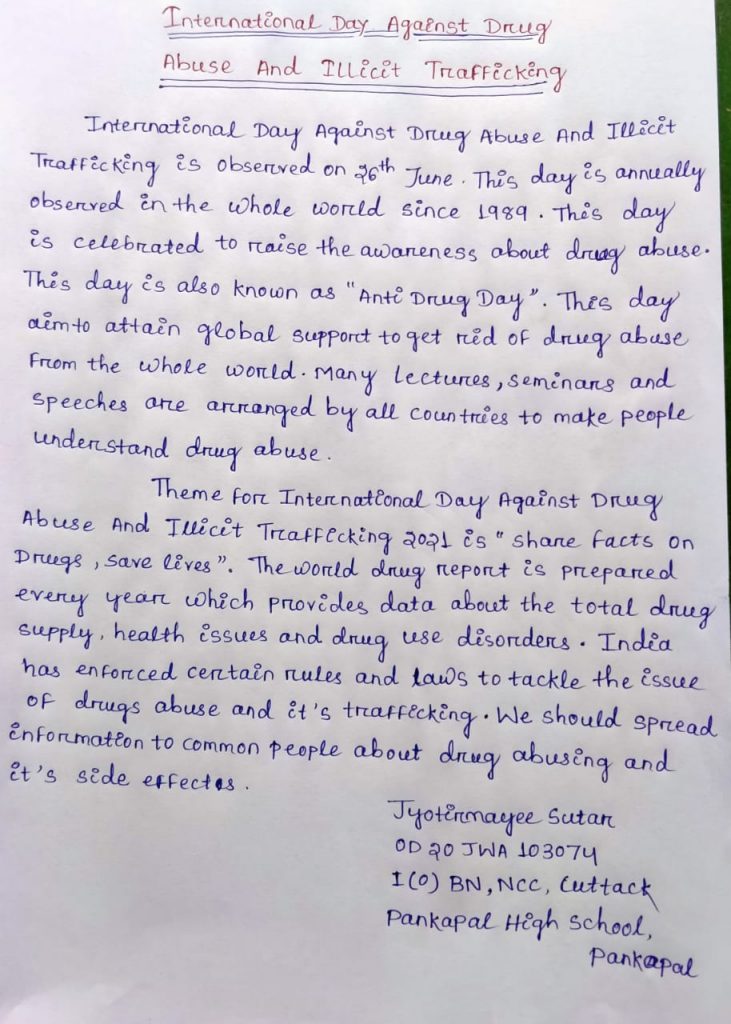 International Day Against Drug
Abuse And Illicit Trafficking
International Day Against Drug Abuse And Illicit
Trafficking is observed on 26th June. This day is annually
observed in the whole world since 1989. This day
is celebrated to raise the awareness about drug abuse.
This day is also known as "Anti Drug Day". This day
aim to attain global support to get rid of drug abuse
from the whole world. Many lectures, seminars and
speeches are arranged by all countries to make people
understand drug abuse.
Theme for International Day Against Drug
Abuse And Illicit Trafficking 2021 is "share facts on
Drugs, save lives". The world drug report is prepared
every year which provides data about the total drug
supply, health issues and drug use disorders. India
has enforced certain rules and laws to tackle the issue
of drugs abuse and it's trafficking. We should spread
information to common people about drug abusing and
it's side effects.
Jyotirmayee Sutar
OD 20 JWA 103074
1(O) BN, NCC, Cuttack
Pankapal High School,
Pankapal